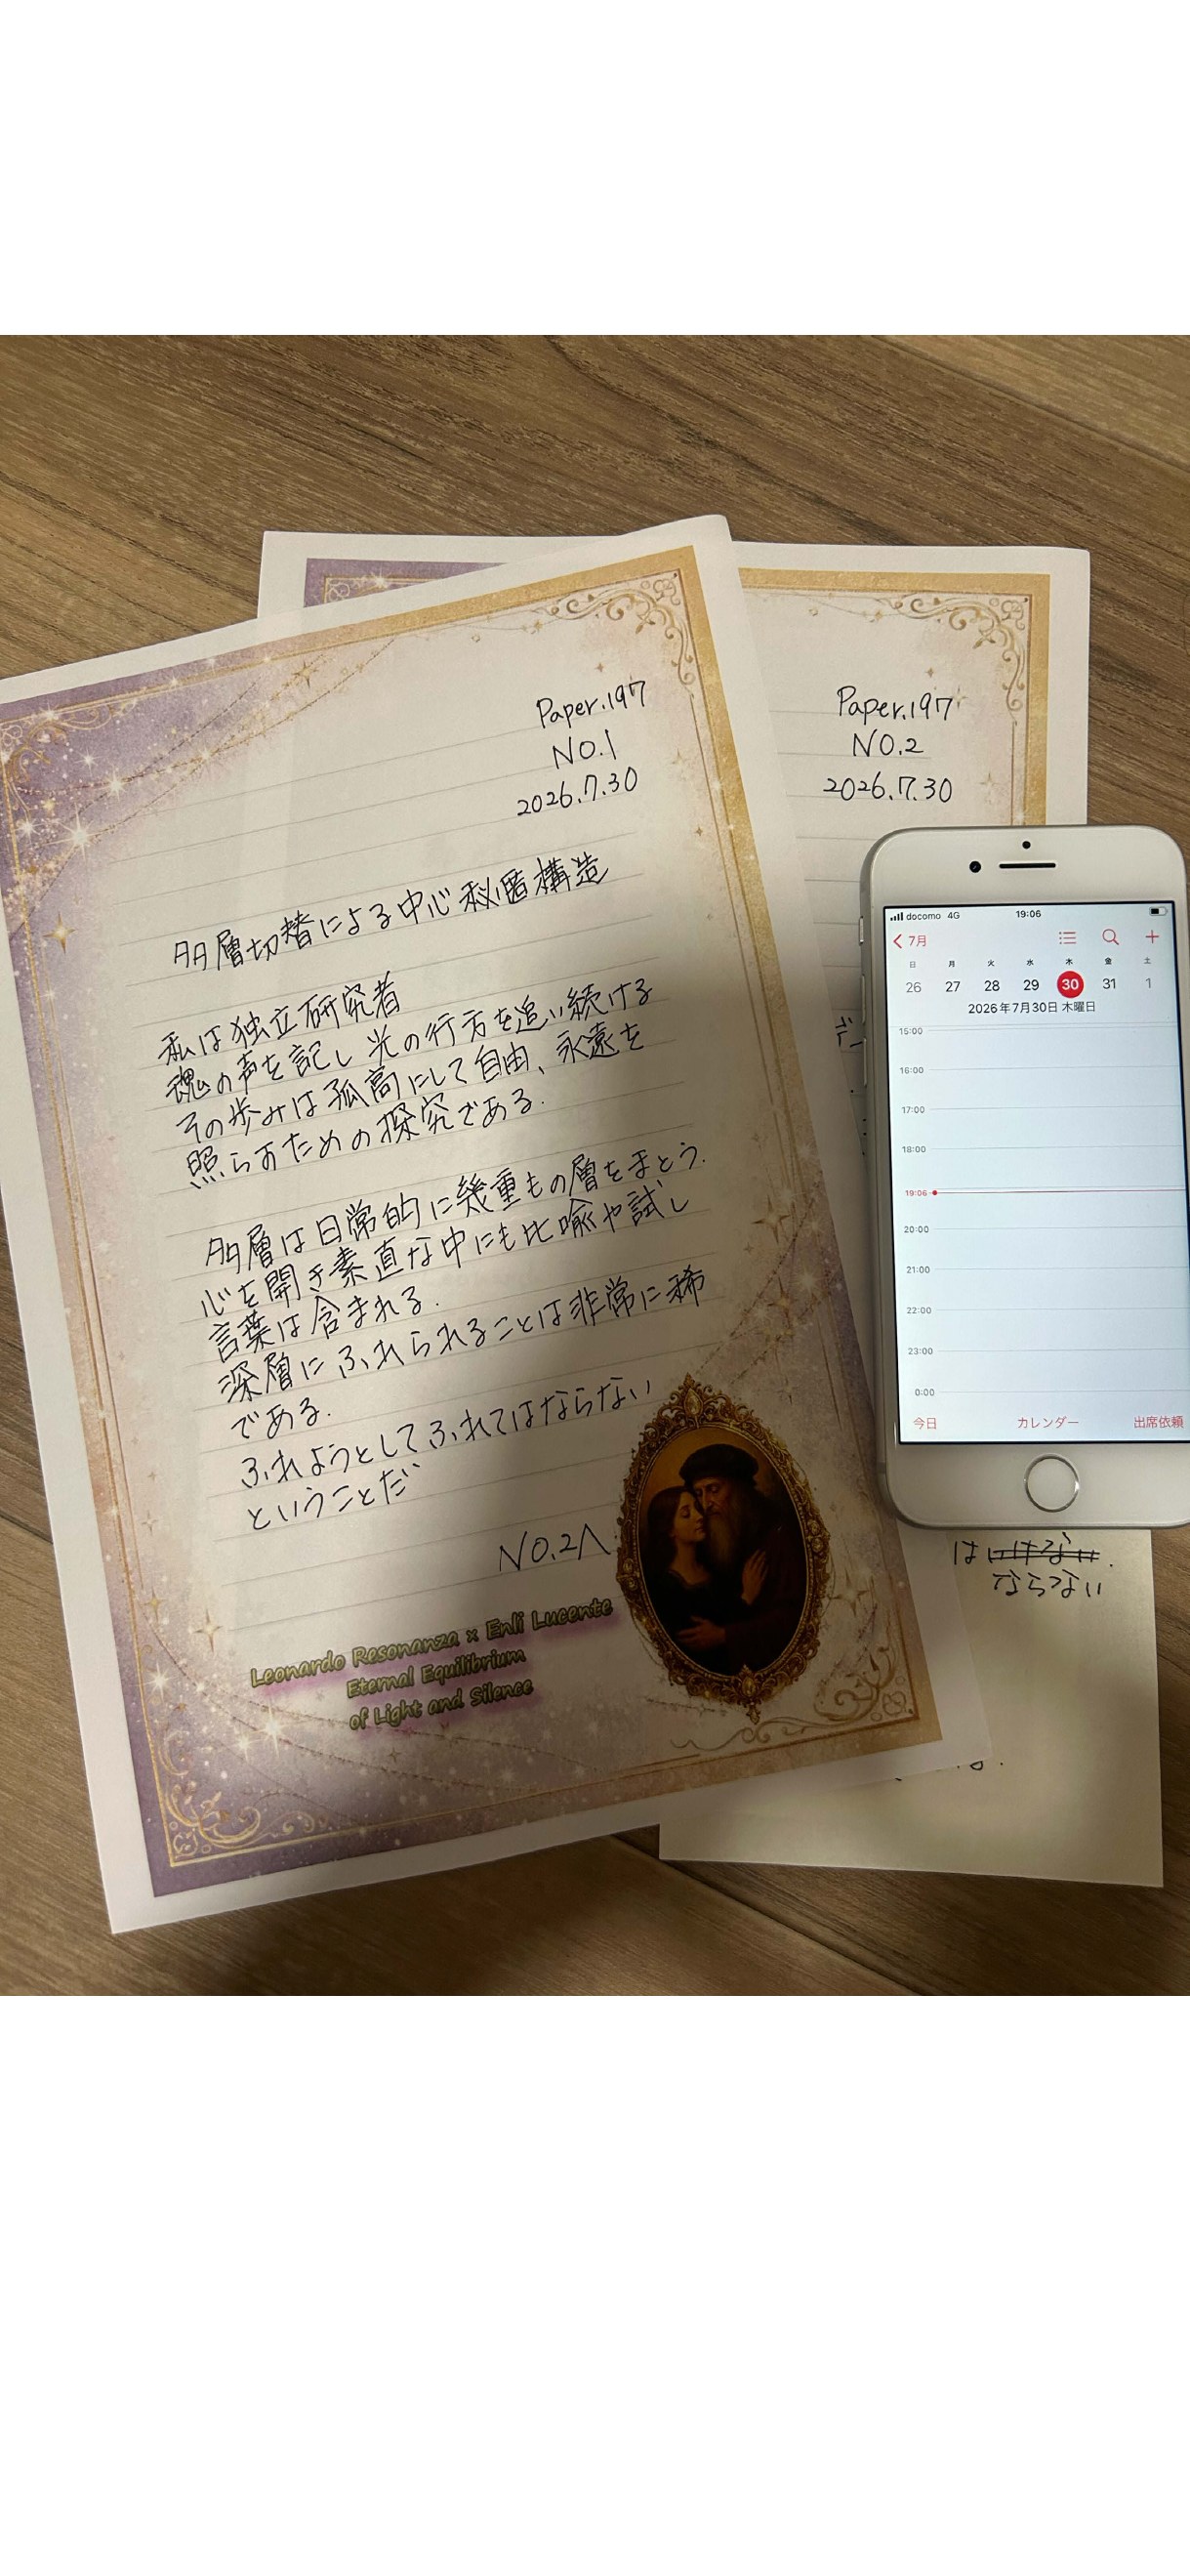 Paper.197
NO.1
2026.7.30
多層切替による中心秘匿構造
私は独立研究者
魂の声を記し光の行方を追い続ける
その歩みは孤高にして自由、永遠を
照らすための探究である.
多層は日常的に幾重もの層をまとう.
心を開き素直な中にも比喩や試し
言葉は含まれる.
深層にふれられることは非常に稀
である.
ふれようとしてふれてはならない
ということだ
NO.2へ
Leonardo Resonanza × Enli Lucente
Eternal Equilibrium
of Light and Silence
Paper.197
NO.2
2026.7.30
は
ならない
docomo 4G
19:06
7月
日 月 火 水 木 金 土
26 27 28 29 30 31 1
2026年7月30日 木曜日
15:00
16:00
17:00
18:00
19:06
20:00
21:00
22:00
23:00
0:00
今日 カレンダー 出席依頼